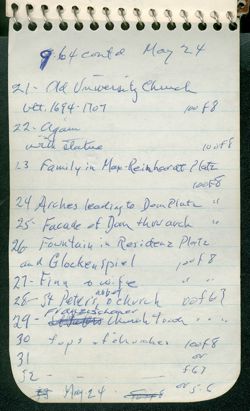 9.64 contd May 24
21- Old University Church
blt. 1694-1707 100 of 8
22- Again
with statue 100 of 8
23 Family in Max-Reinhardt Platz
100 of 8
24 Arches leading to Dom Platz "
25- Facade of Dom thru arch "
26- Fountain in Residenz Platz
and Glockenspiel 100 f 8
27- Finn & wife "
28- St Peter's church 00 f 63
Franziskaner
29- Church tower " " "
30 tops of churches 100 f 8
31 or
32 - f 63
May 24 or 5.6